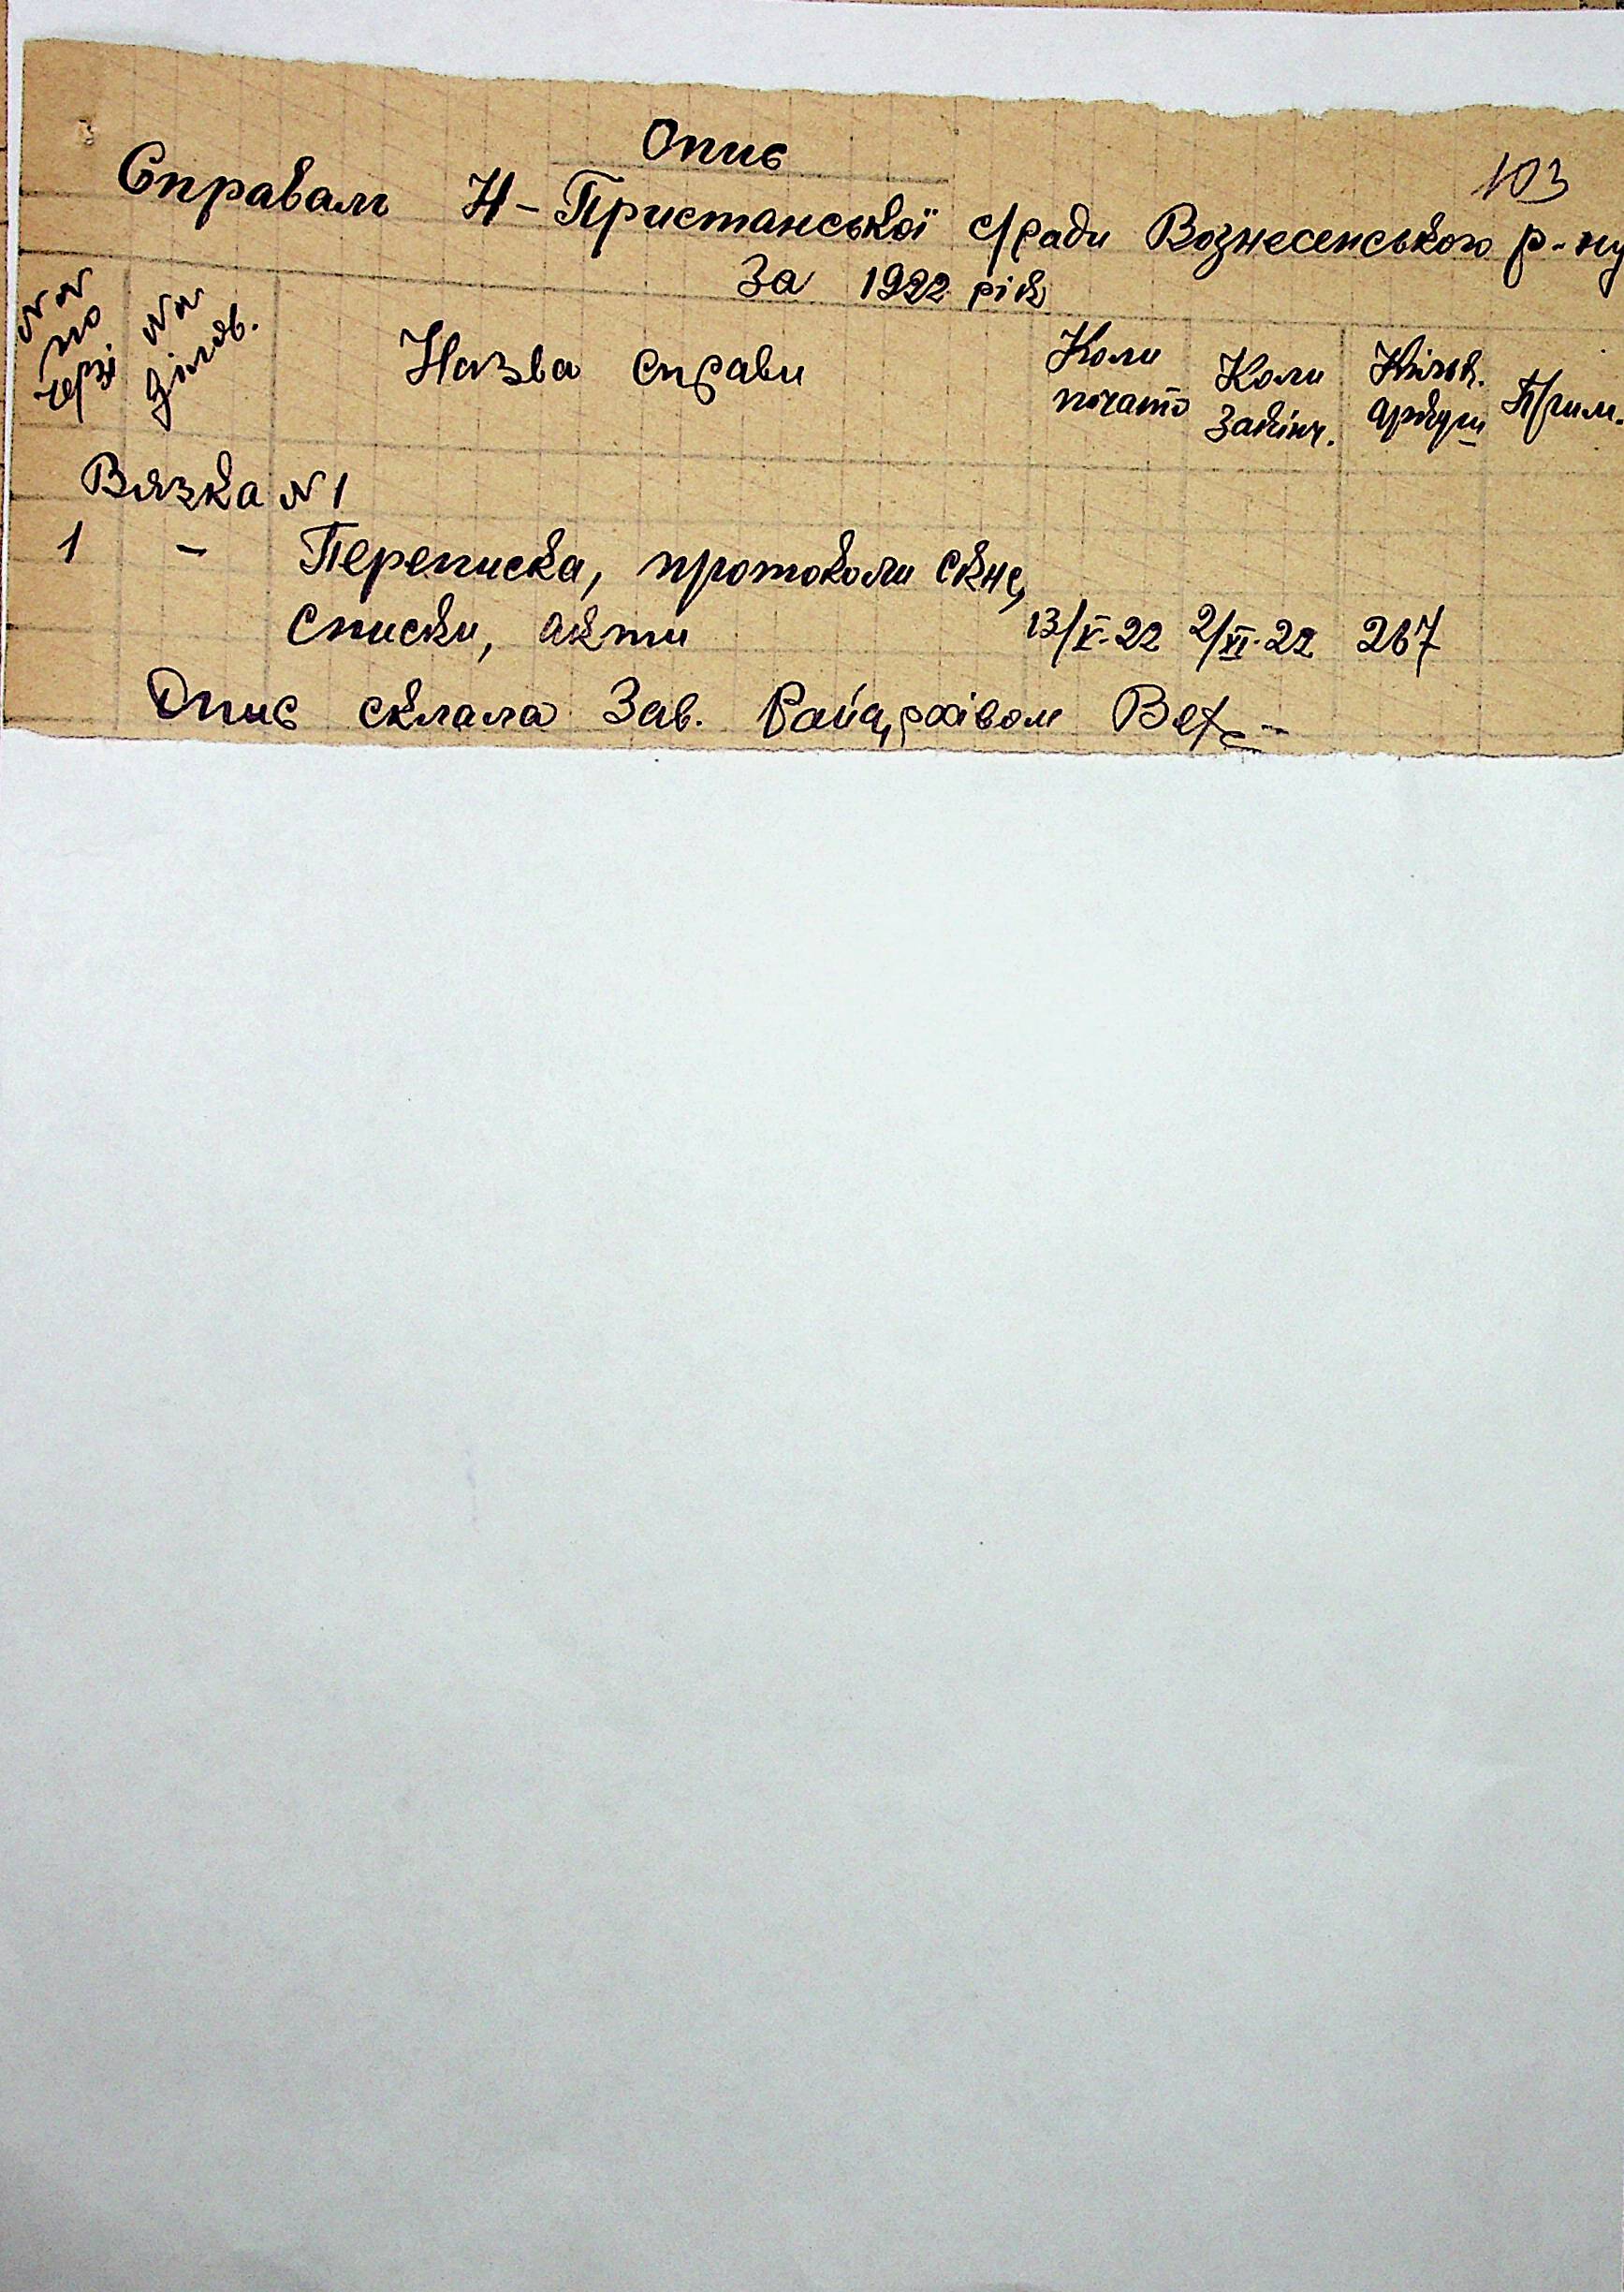 Опис
103
Справам Н-Пристанської с/ради Вознесенського р-ну
За 1922 рік
№№ по черзі
№№ діловв.
Назва справи
Коли почато
Коли закінч.
Кільк. аркуш
Прим.
Вязка №1
1 - Переписка, протоколи СКНС,
списки, акти 13/V-22 2/VI-22 267
Опис склала Зав. Райархівом